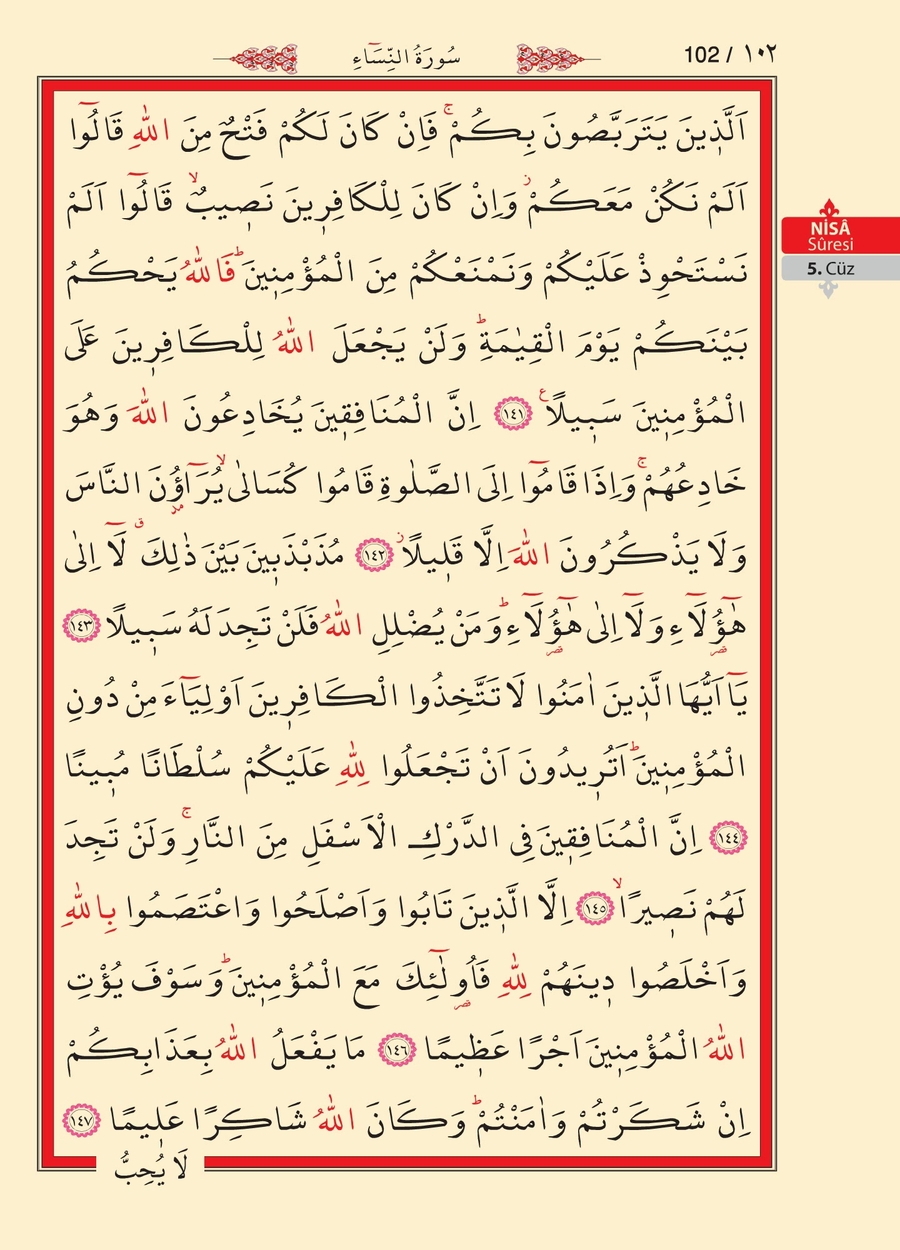 102 / ١٠٢
سُورَةُ النِّسَٓاءِ
NİSÂ
Sûresi
5. Cüz
اَلَّذ۪ينَ يَتَرَبَّصُونَ بِكُمْۚ فَاِنْ كَانَ لَكُمْ فَتْحٌ مِنَ اللّٰهِ قَالُٓوا
اَلَمْ نَكُنْ مَعَكُمْۘ وَاِنْ كَانَ لِلْكَافِر۪ينَ نَص۪يبٌۙ قَالُٓوا اَلَمْ
نَسْتَحْوِذْ عَلَيْكُمْ وَنَمْنَعْكُمْ مِنَ الْمُؤْمِن۪ينَۜ فَاللّٰهُ يَحْكُمُ
بَيْنَكُمْ يَوْمَ الْقِيٰمَةِۜ وَلَنْ يَجْعَلَ اللّٰهُ لِلْكَافِر۪ينَ عَلَى
الْمُؤْمِن۪ينَ سَب۪يلًاۧ ﴿١٤١﴾ اِنَّ الْمُنَافِق۪ينَ يُخَادِعُونَ اللّٰهَ وَهُوَ
خَادِعُهُمْۚ وَاِذَا قَامُٓوا اِلَى الصَّلٰوةِ قَامُوا كُسَالٰىۙ يُرَٓاؤُ۫نَ النَّاسَ
وَلَا يَذْكُرُونَ اللّٰهَ اِلَّا قَل۪يلًاۘ ﴿١٤٢﴾ مُذَبْذَب۪ينَ بَيْنَ ذٰلِكَۗ لَٓا اِلٰى
هٰٓؤُ۬لَٓاءِ وَلَٓا اِلٰى هٰٓؤُ۬لَٓاءِۜ وَمَنْ يُضْلِلِ اللّٰهُ فَلَنْ تَجِدَ لَهُ سَب۪يلًا ﴿١٤٣﴾
يَٓا اَيُّهَا الَّذ۪ينَ اٰمَنُوا لَا تَتَّخِذُوا الْكَافِر۪ينَ اَوْلِيَٓاءَ مِنْ دُونِ
الْمُؤْمِن۪ينَۜ اَتُر۪يدُونَ اَنْ تَجْعَلُوا لِلّٰهِ عَلَيْكُمْ سُلْطَانًا مُب۪ينًا
﴿١٤٤﴾ اِنَّ الْمُنَافِق۪ينَ فِي الدَّرْكِ الْاَسْفَلِ مِنَ النَّارِۚ وَلَنْ تَجِدَ
لَهُمْ نَص۪يرًاۙ ﴿١٤٥﴾ اِلَّا الَّذ۪ينَ تَابُوا وَاَصْلَحُوا وَاعْتَصَمُوا بِاللّٰهِ
وَاَخْلَصُوا د۪ينَهُمْ لِلّٰهِ فَاُو۬لٰٓئِكَ مَعَ الْمُؤْمِن۪ينَۜ وَسَوْفَ يُؤْتِ
اللّٰهُ الْمُؤْمِن۪ينَ اَجْرًا عَظ۪يمًا ﴿١٤٦﴾ مَا يَفْعَلُ اللّٰهُ بِعَذَابِكُمْ
اِنْ شَكَرْتُمْ وَاٰمَنْتُمْۜ وَكَانَ اللّٰهُ شَاكِرًا عَل۪يمًا ﴿١٤٧﴾
لَا يُحِبُّ